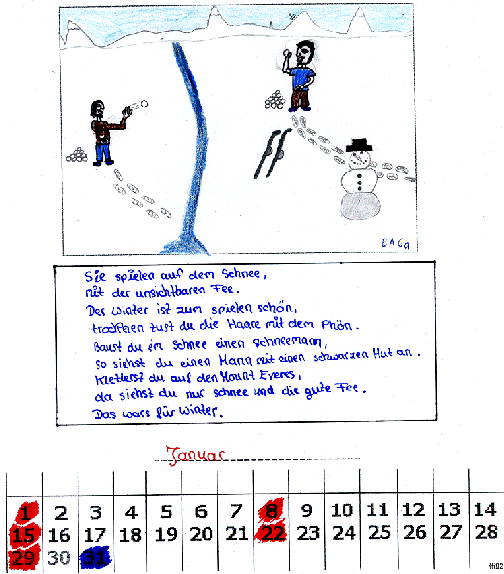 EAGa
Sie spielen auf dem Schnee,
mit der unsichtbaren Fee.
Der Winter ist zum spielen schön,
trocknen tust du die Haare mit dem Phön.
Baust du im Schnee einen Schneemann,
so siehst du einen Mann mit einen schwarzen Hut an.
Kletterst du auf den Mount Everes,
da siehst du nur schnee und die gute Fee.
Das wars für Winter.
Januar
1 2 3 4 5 6 7 8 9 10 11 12 13 14
15 16 17 18 19 20 21 22 23 24 25 26 27 28
29 30 31